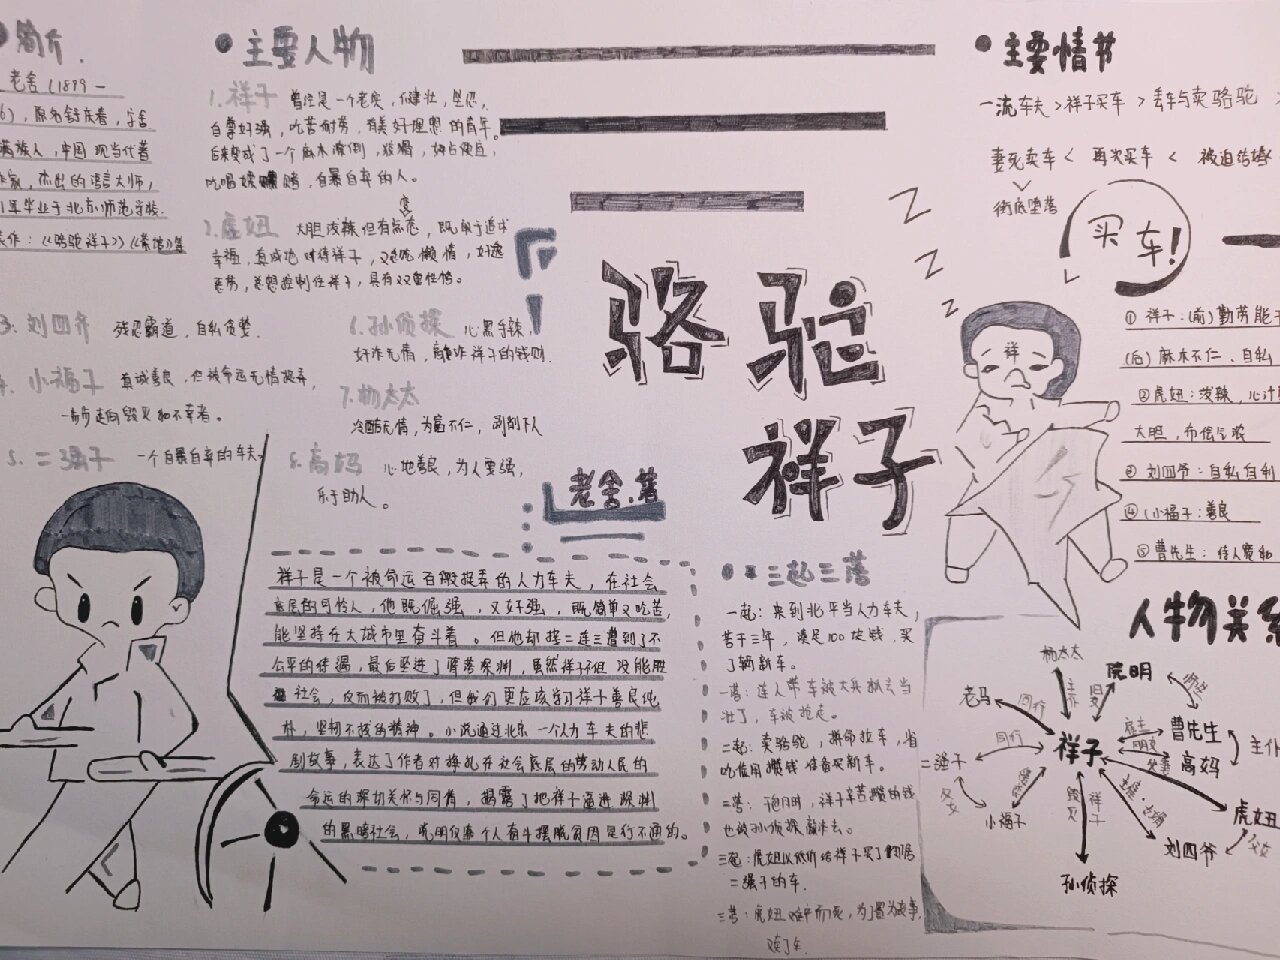 简介
老舍(1899—
6),原名舒庆春,字舍
满族人,中国现当代著
作家,杰出的语言大师,
年毕业于北京师范学校.
《骆驼祥子》《茶馆》等
主要人物
1.祥子 曾经是一个老实,健壮,坚忍,
自尊好强,吃苦耐劳,有美好理想的青年。
后来变成了一个麻木潦倒,狡猾,好占便宜,
吃喝嫖赌,自暴自弃的人。
2.虎妞 大胆泼辣但有点变态,既敢于追求
幸福,真成地对待祥子,又好吃懒惰,好逸
恶劳,总想控制住祥子,具有双重性格。
3.刘四爷 残忍霸道,自私贪婪.
4.小福子 真诚善良,但被命运无情捉弄,
一步步走向毁灭和不幸者。
5.二强子 一个自暴自弃的车夫
6.孙侦探 心黑手辣,
奸诈无情,敲诈祥子的钱财.
7.杨太太
冷酷无情,为富不仁,剥削下人
8.高妈 心地善良,为人要强,
乐于助人。
骆驼
祥子
老舍.著
祥子是一个被命运百般捉弄的人力车夫,在社会
底层的可怜人,他既倔强,又好强,既简单又吃苦,
能坚持在大城市里奋斗着。但他却接二连三遭到了不
公平的待遇,最后坠进了堕落深渊,虽然祥子但没能胜
社会,反而被打败了,但我们更应该学习祥子善良纯
朴,坚韧不拔的精神。小说通过北京一个人力车夫的悲
剧故事,表达了作者对挣扎在社会底层的劳动人民的
命运的深切关怀与同情,揭露了把祥子逼进深渊
的黑暗社会,说明仅靠个人奋斗摆脱贫困是行不通的。
三起三落
一起:来到北平当人力车夫,
苦干三年,凑足100块钱,买
了辆新车。
一落:连人带车被大兵抓去当
壮丁,车被抢走.
二起:卖骆驼,拼命拉车,省
吃俭用攒钱准备买新车。
二落:祥子辛苦攒的钱
也被孙侦探敲诈去。
三起:虎妞以低价给祥子买了邻居
二强子的车.
三落:虎妞难产而死,为了置办丧事,
卖了车
主要情节
一流车夫>祥子买车>丢车与卖骆驼>
妻死卖车<再次买车<被迫结婚
彻底堕落
买车!
祥
①祥子:(前)勤劳能干
(后)麻木不仁、自私
②虎妞:泼辣,心计
大胆,
③刘四爷:自私自利
④小福子:善良
⑤曹先生:待人宽和
人物关系
杨太太
阮明
老马
同行
雇主
曹先生
朋友
高妈
主仆
祥子
同行
二强子
父女
小福子
虎妞
父女
刘四爷
孙侦探